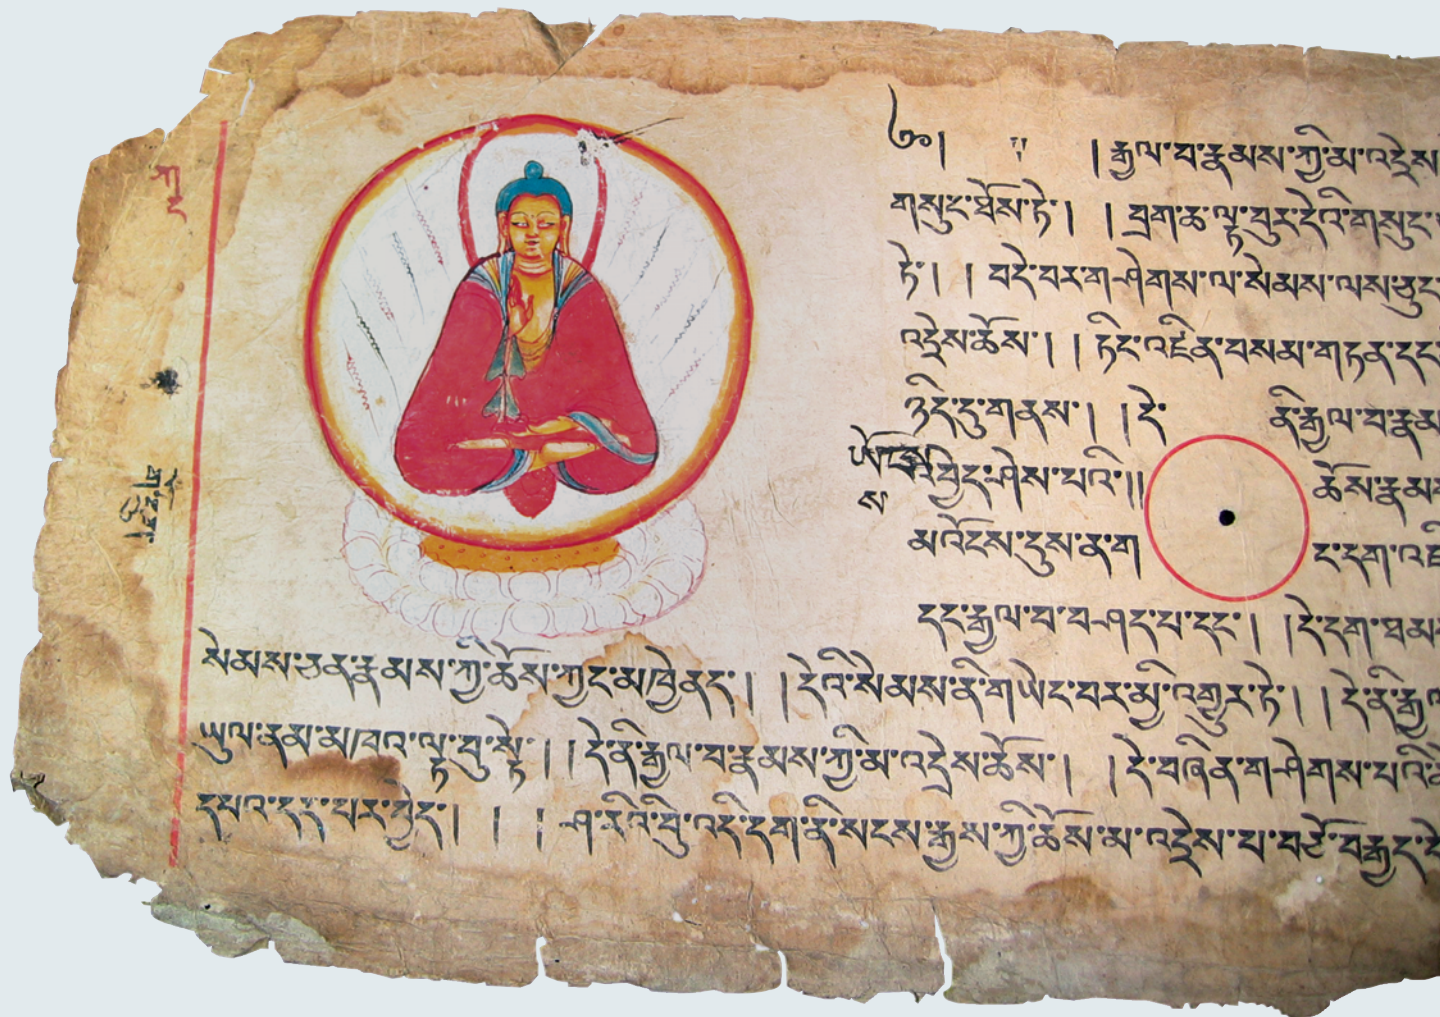 ༄༅། ། །རྒྱལ་བ་རྣམས་ཀྱི་མ་འདྲེས
གསུང་ཐོས་ཏེ། ། བྲག་ཆ་ལྟ་བུར་དེའི་གསུང་
ཏེ། ། བདེ་བར་གཤེགས་ལ་སེམས་ལས་བྱུང་
འདྲེས་ཆོས། ། ཏིང་འཛིན་བསམ་གཏན་དང་
ཉིད་དུ་གནས། ། དེ་ ནི་རྒྱལ་བ་རྣམ
བྱེད་ཤེས་པའི།། ཆོས་རྣམ
མ་འོངས་དུས་ན་ག ང་དག་འཇི
དང་རྒྱལ་བ་བཤད་པ་དང་། །དེ་དག་ཐམ
སེམས་ཅན་རྣམས་ཀྱི་ཆོས་ཀྱང་མཁྱེནད། །དེའི་སེམས་ནི་གཡེང་བར་མྱི་འགྱུར་ཏེ། །དེ་ནི་རྒྱལ
ཡུལ་ནམ་མཁའ་ལྟ་བུ་སྟེ། །དེ་ནི་རྒྱལ་བ་རྣམས་ཀྱི་མ་འདྲེས་ཆོས། །དེ་བཞིན་གཤེགས་པའི་
དཔའ་དད་པར་བྱེད། ། །ཤ་རིའི་བུ་འདི་དག་ནི་སངས་རྒྱས་ཀྱི་ཆོས་མ་འདྲེས་པ་བཅོ་བརྒྱད་དེ